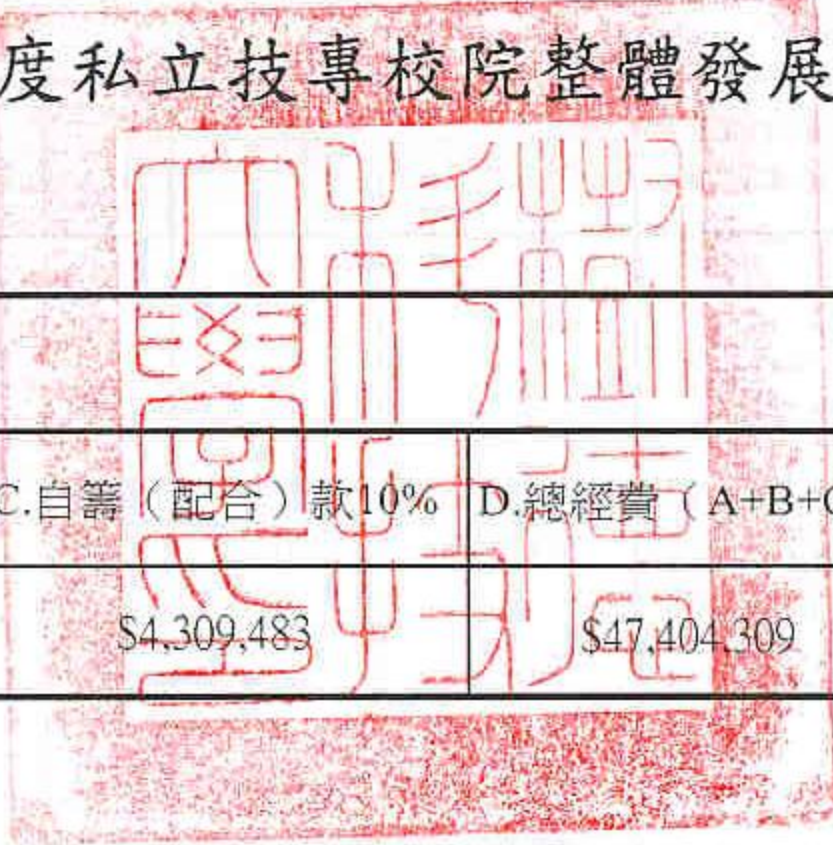 度私立技專校院整體發展
樹德科技大學印
C.自籌（配合）款10% D.總經費（A+B+C
$4,309,483 $47,404,309